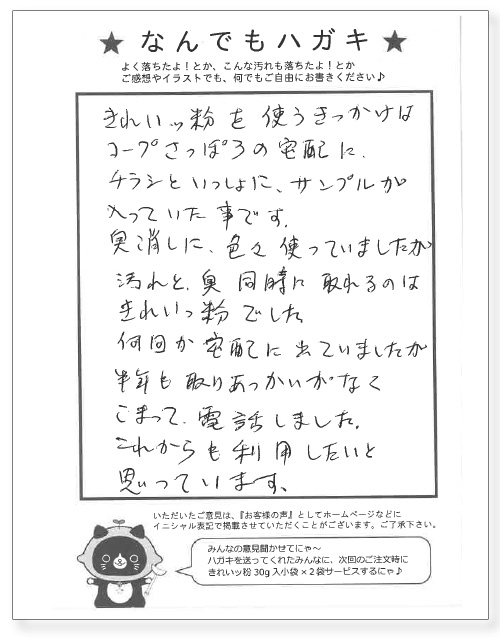 ★ なんでもハガキ ★
よく落ちたよ！とか、こんな汚れも落ちたよ！とか
ご感想やイラストでも、何でもご自由にお書きください♪
きれいッ粉を使うきっかけは
コープさっぽろの宅配に、
チラシといっしょに、サンプルが
入っていた事です。
臭消しに、色々使っていましたが
汚れと、臭同時に取れるのは
きれいっ粉でした
何回か宅配に出ていましたが
半年も取りあつかいがなく
こまって、電話しました。
これからも利用したいと
思っています。
いただいたご意見は、『お客様の声』としてホームページなどに
イニシャル表記で掲載させていただくことがございます。ご了承下さい。
みんなの意見聞かせてにゃ～
ハガキを送ってくれたみんなに、次回のご注文時に
きれいッ粉 30g 入小袋×2袋サービスするにゃ♪